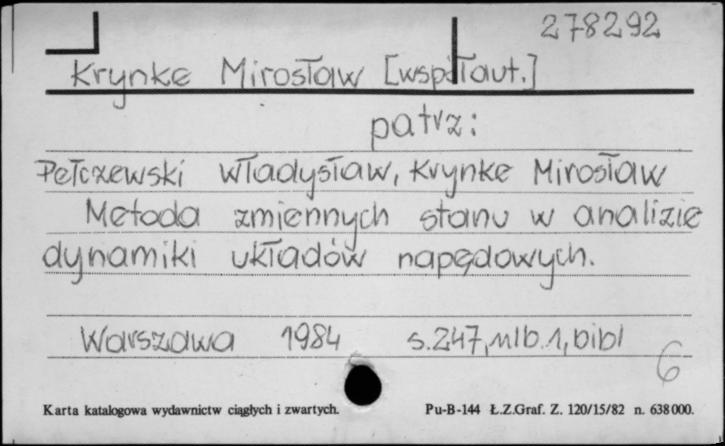 278292
Krynke Mirosław [współaut.]
patrz:
Pełczewski Władysław, Krynke Mirosław
Metoda zmiennych stanu w analizie
dynamiki układów napędowych.
Warszawa 1984 s.247, nlb.1, bibl
6
Karta katalogowa wydawnictw ciągłych i zwartych. Pu-B-144 Ł.Z.Graf. Z. 120/15/82 n. 638000.